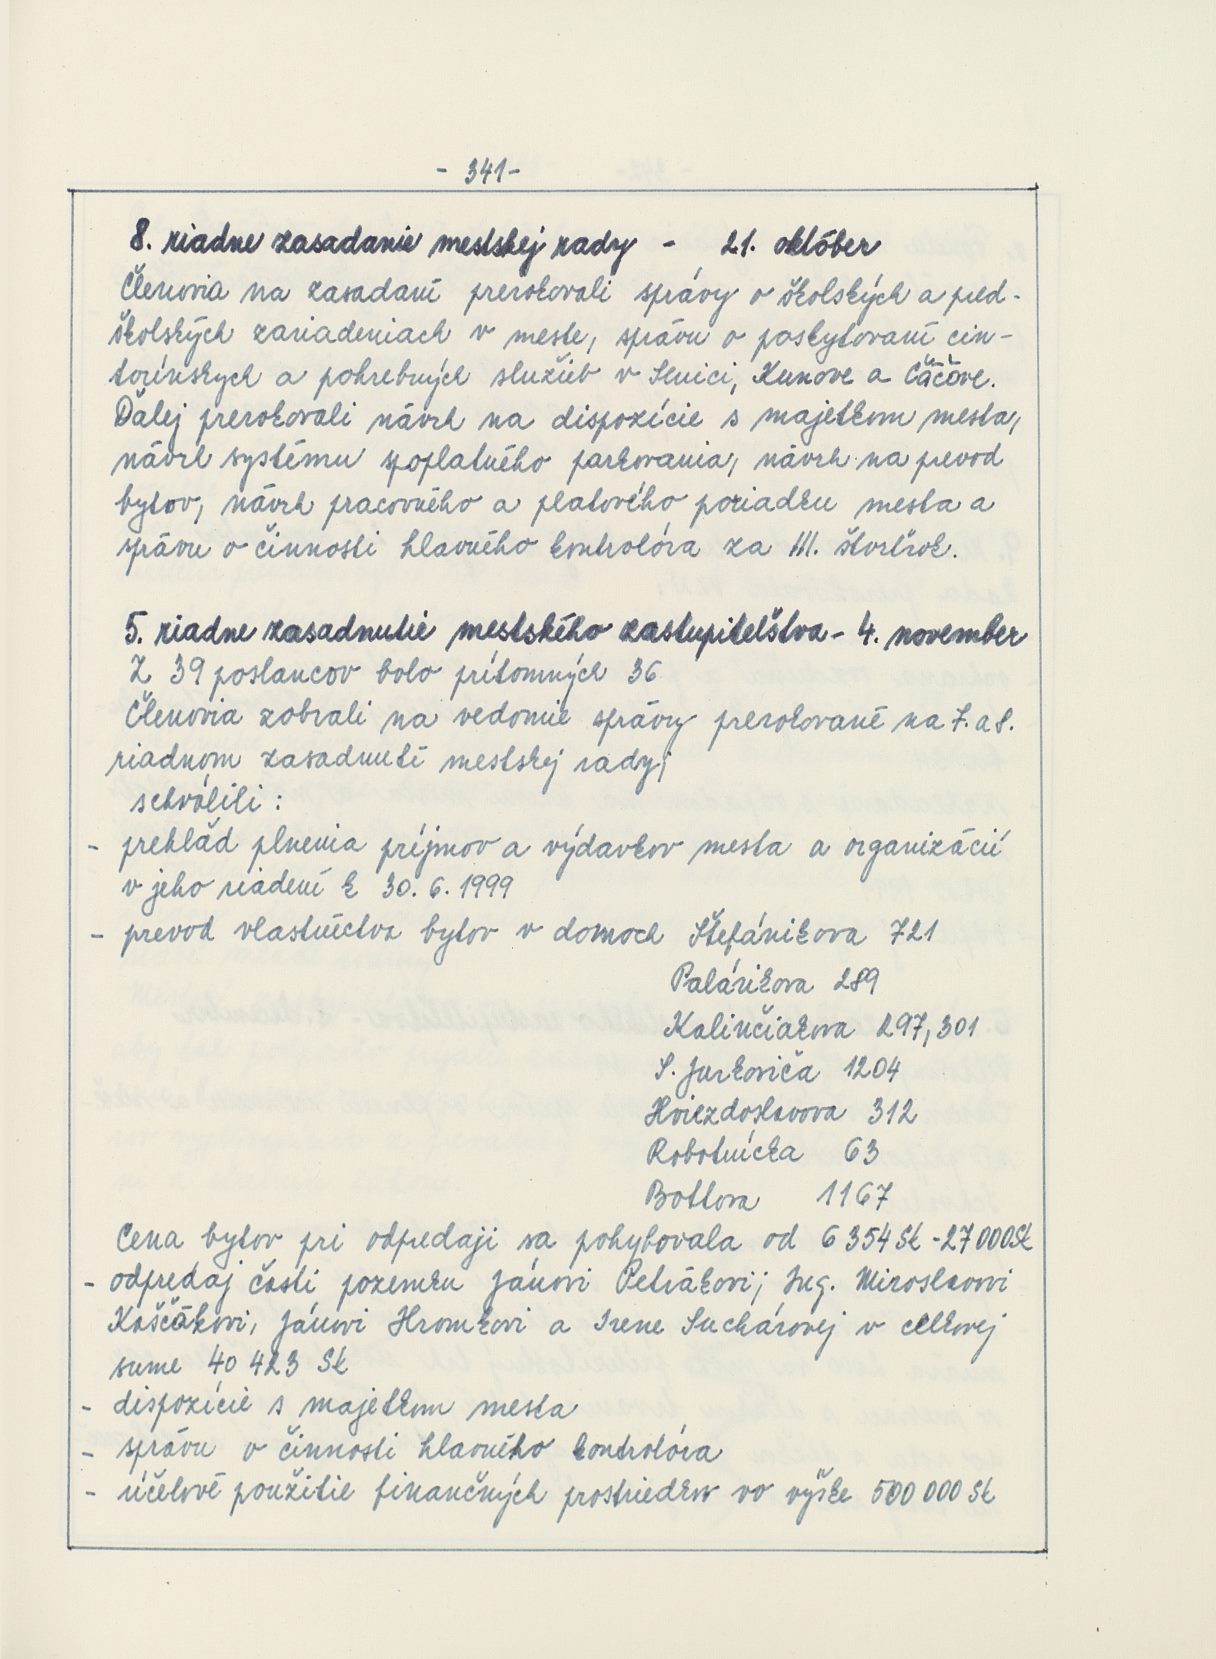 - 341 -
8. riadne zasadanie mestskej rady - 21. október
Členovia na zasadaní prerokovali správy o školských a pred-
školských zariadeniach v meste, správu o poskytovaní cin-
torínskych a pohrebných služieb v Senici, Kunove a Čáčove.
Ďalej prerokovali návrh na dispozície s majetkom mesta,
návrh systému spoplatného parkovania, návrh na prevod
bytov, návrh pracovného a platového poriadku mesta a
správu o činnosti hlavného kontrolóra za III. štvrťrok.
5. riadne zasadnutie mestského zastupiteľstva - 4. november
Z 39 poslancov bolo prítomných 36
Členovia zobrali na vedomie správy prerokované na 7. a 8.
riadnom zasadnutí mestskej rady;
schválili:
- prehľad plnenia príjmov a výdavkov mesta a organizácií
v jeho riadení k 30. 6. 1999
- prevod vlastníctva bytov v domoch Štefánikova 721
Palárikova 289
Kalinčiakova 297, 301
S. Jurkoviča 1204
Hviezdoslavova 312
Robotnícka 63
Bottova 1167
Cena bytov pri odpredaji sa pohybovala od 6 354 Sk - 27 000 Sk
- odpredaj časti pozemku Jánovi Petrákovi; Ing. Miroslavovi
Koščákovi, Jánovi Hromkovi a Irene Suchárovej v celkovej
sume 40 423 Sk
- dispozície s majetkom mesta
- správu o činnosti hlavného kontrolóra
- účelové použitie finančných prostriedkov vo výške 500 000 Sk